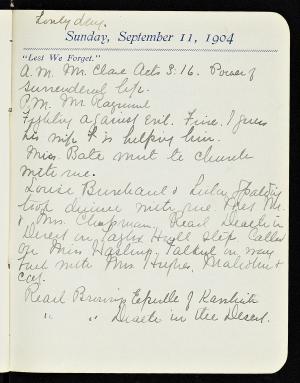 Lonly day.
Sunday, September 11, 1904
"Lest We Forget."
A.M. Mr. Clare Acts 3:16. Power of
surrendered life.
P.M. Mr Raymond
Fighting against Evil. Fine. I guess
his wife is helping him.
Miss Bate went to church
with me.
Louise Burchard &
took dinner with me Met Mr.
& Mrs. Chapman. Read Death in
Desert in Hall Slept Called
on Miss Talked on way
with Mrs Hughes, Malcolm &
Read Browning Epistle of Karshish
" " Death in the Desert.